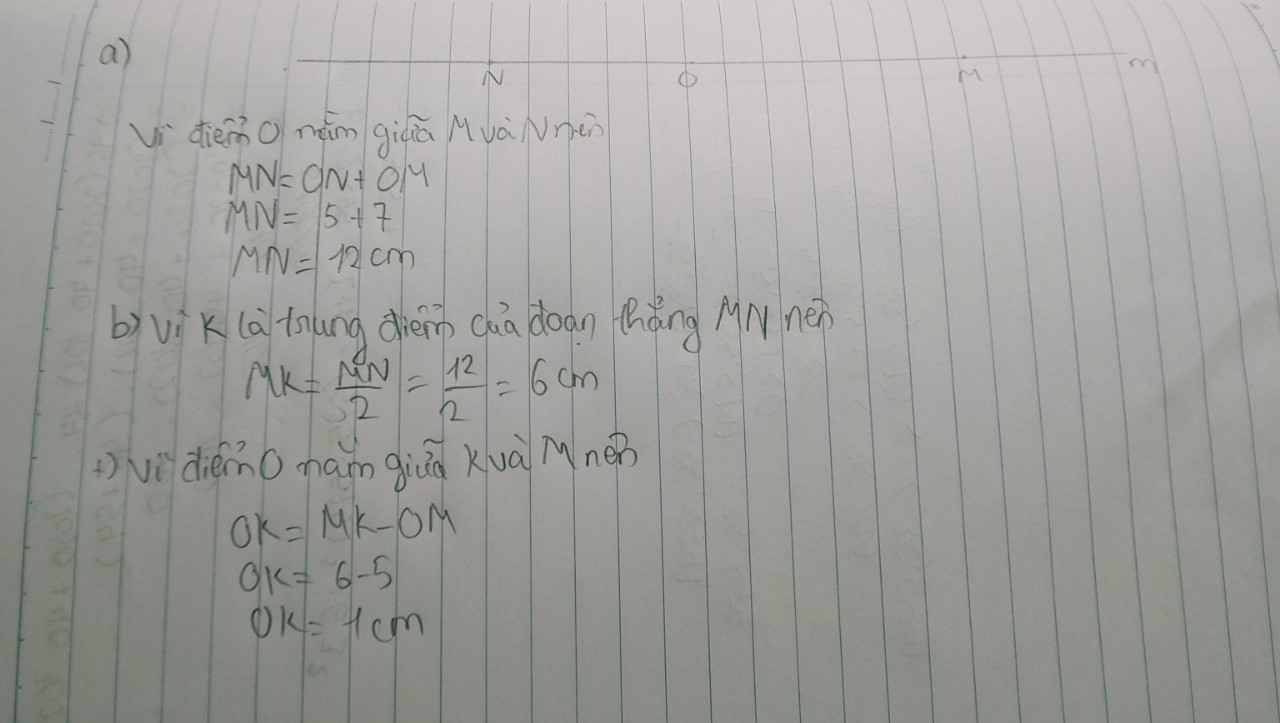 a)
N O M m
Vì điểm O nằm giữa M và N nên
MN = ON + OM
MN = 5 + 7
MN = 12 cm
b) Vì K là trung điểm của đoạn thẳng MN nên
MK = MN/2 = 12/2 = 6 cm
+) Vì điểm O nằm giữa K và M nên
OK = MK - OM
OK = 6 - 5
OK = 1 cm